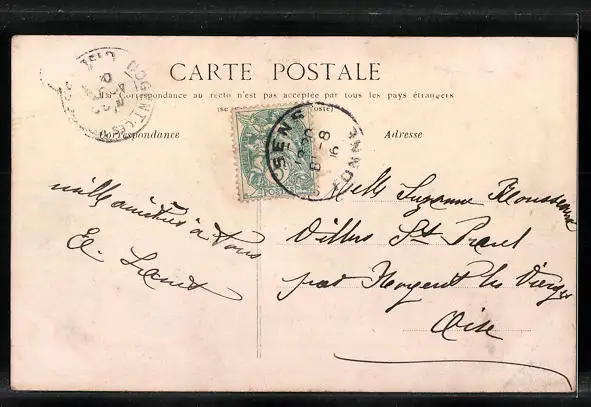 CARTE POSTALE
La Correspondance au recto n'est pas acceptée par tous les pays étrangers
Correspondance
Adresse
SENS
YONNE
NOGENT-LES
OISE
mille amitiés à tous
Melle Suzanne
Villers St Paul
par Nogent les Vierges
Oise